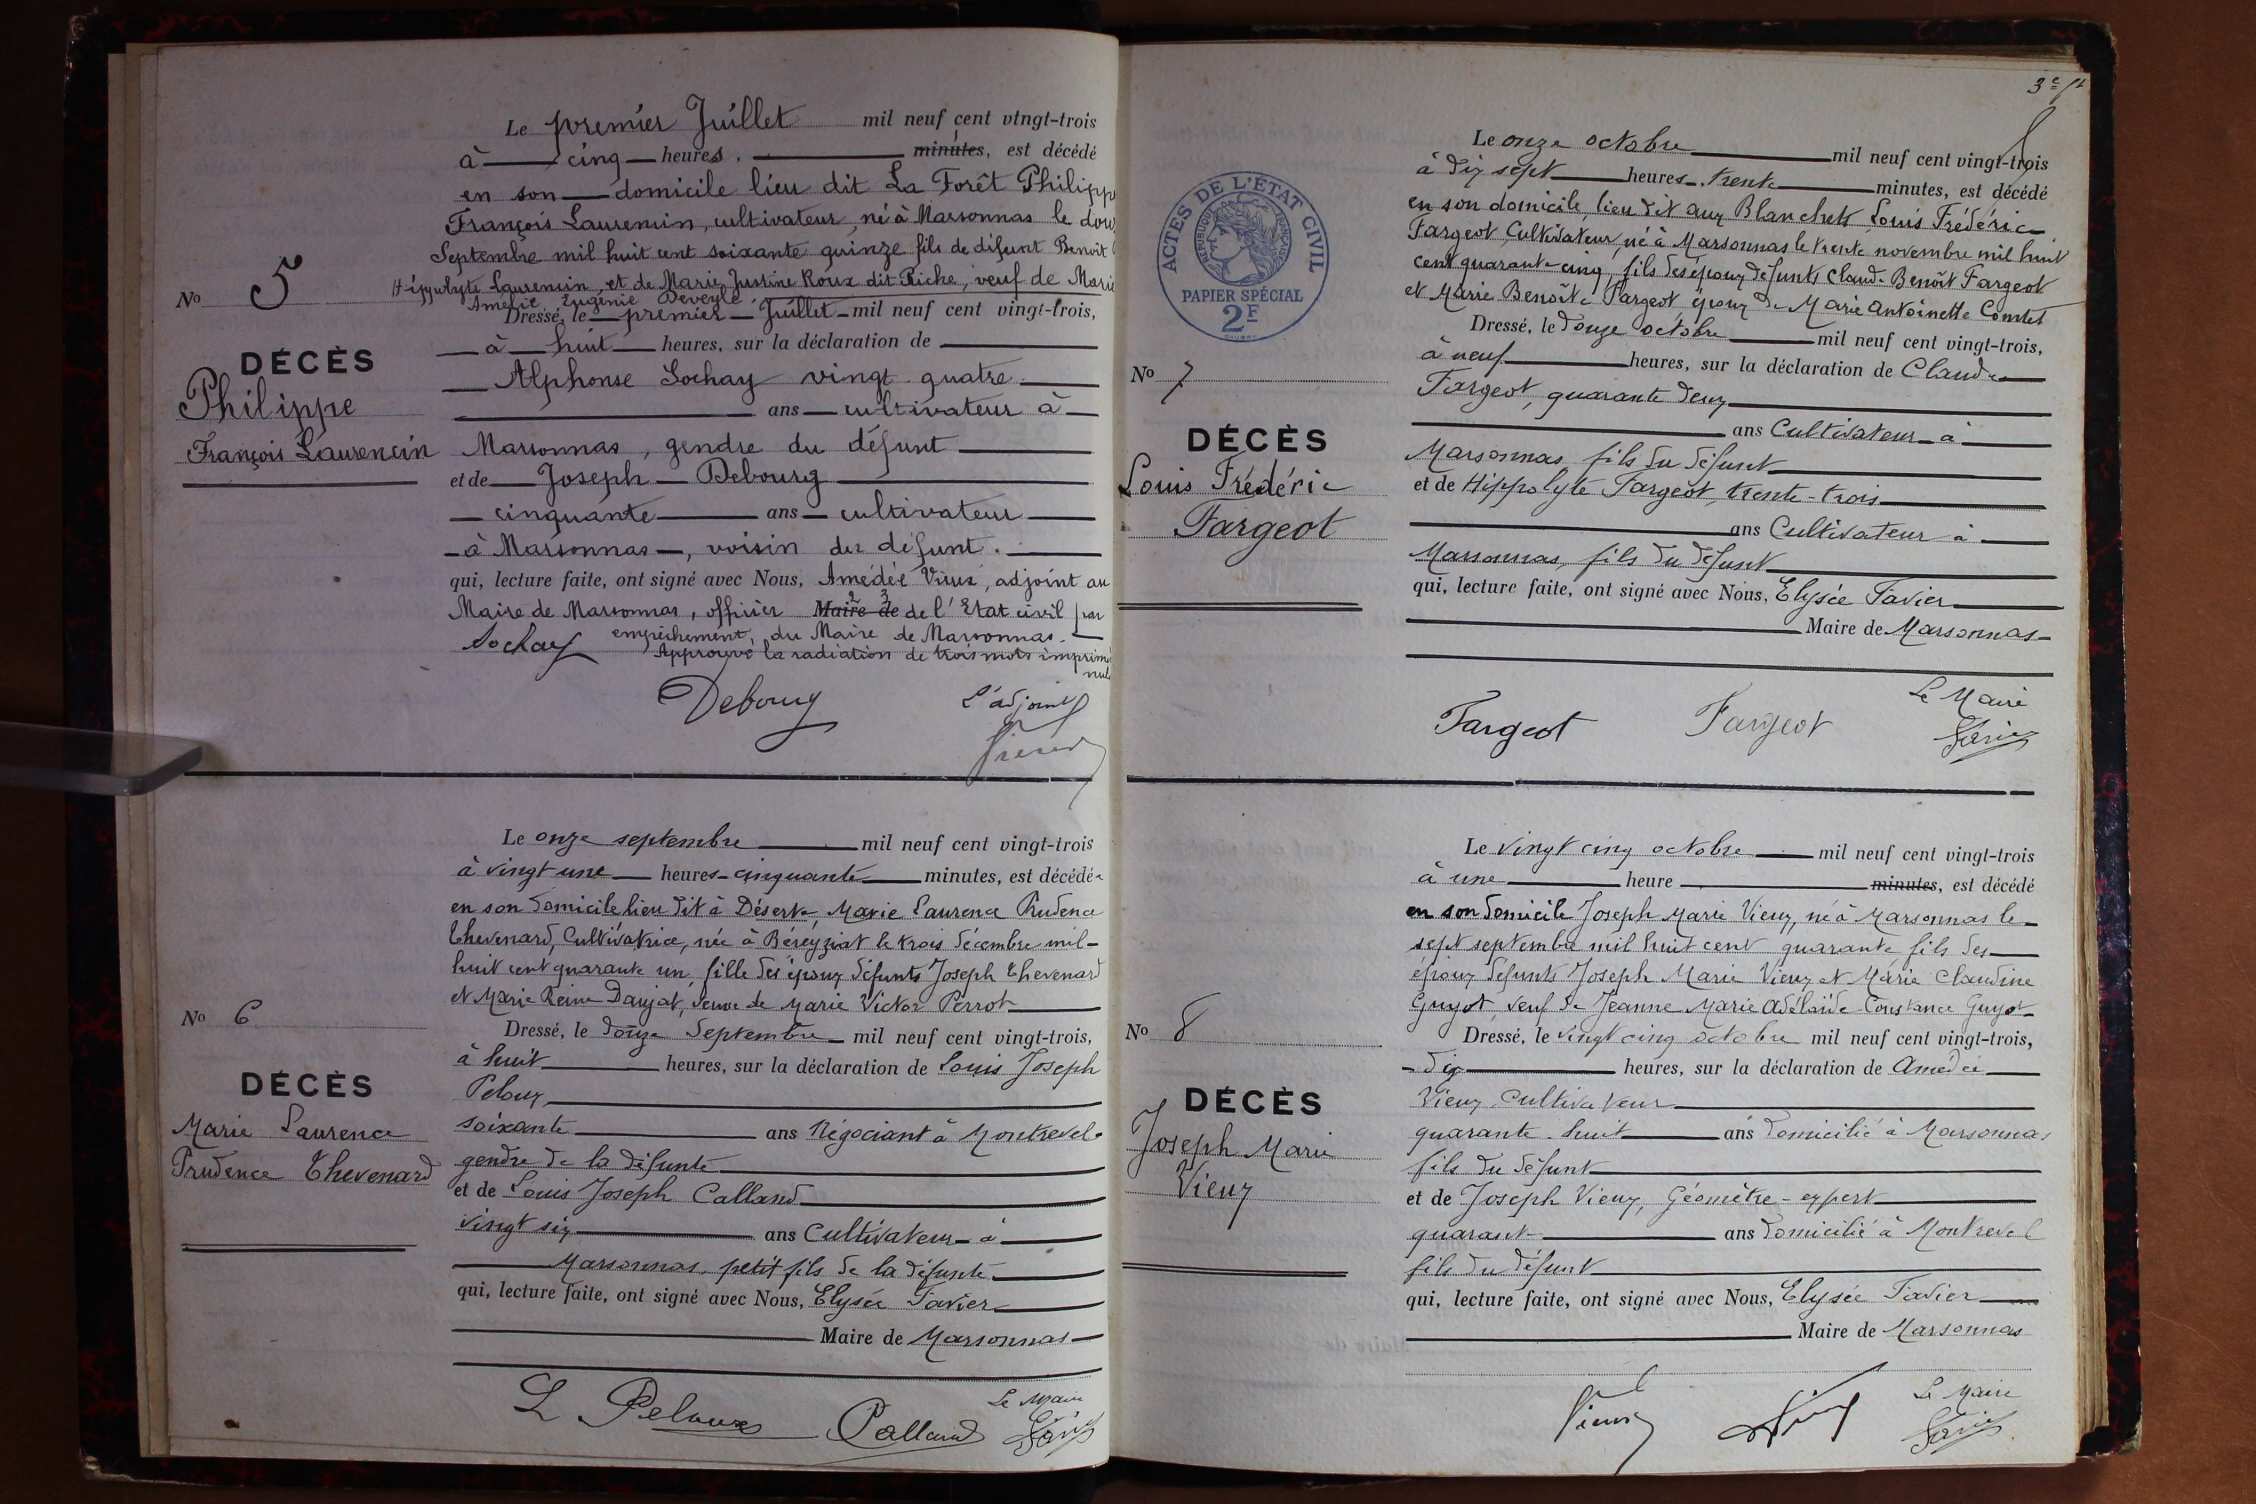 Le premier Juillet mil neuf cent vingt-trois
à cinq heures, minutes, est décédé
en son domicile lieu dit La Forêt Philippe
François Laurencin, cultivateur, né à Marsonnas le
Septembre mil huit cent soixante quinze fils de défunt Benoît
Hippolyte Laurencin, et de Marie Justine Roux dit Riche, veuf de Marie
Amélie Eugénie Deveyle
No 5
Dressé, le premier Juillet mil neuf cent vingt-trois,
à huit heures, sur la déclaration de
DÉCÈS
Philippe
François Laurencin
Alphonse Sochay vingt quatre
ans cultivateur à
Marsonnas, gendre du défunt
et de Joseph Debourg
cinquante ans cultivateur
à Marsonnas, voisin du défunt.
qui, lecture faite, ont signé avec Nous, Amédée Vieux, adjoint au
Maire de Marsonnas, officier Maire de de l'Etat civil par
empêchement, du Maire de Marsonnas.
Approuvé la radiation de trois mots imprimés
nuls
Sochay
Debourg
L'adjoint
Vieux
Le onze septembre mil neuf cent vingt-trois
à vingt une heures cinquante minutes, est décédée
en son domicile lieu dit à Déserte, Marie Laurence Prudence
Thevenard, Cultivatrice, née à Béréyziat le trois décembre mil-
huit cent quarante un, fille des époux défunts Joseph Thevenard
et Marie Reine Daujat, veuve de Marie Victor Perrot
No 6
Dressé, le douze Septembre mil neuf cent vingt-trois,
à huit heures, sur la déclaration de Louis Joseph
DÉCÈS
Marie Laurence
Prudence Thevenard
Peloux
soixante ans Négociant à Montrevel
gendre de la défunte
et de Louis Joseph Calland
vingt six ans Cultivateur à
Marsonnas petit fils de la défunte
qui, lecture faite, ont signé avec Nous, Elysée Favier
Maire de Marsonnas
L Peloux
Calland
Le Maire
Favier
3e ft
ACTES DE L'ÉTAT CIVIL
RÉPUBLIQUE FRANÇAISE
PAPIER SPÉCIAL
2F
Le onze octobre mil neuf cent vingt-trois
à dix sept heures trente minutes, est décédé
en son domicile, lieu dit aux Blanchets Louis Frédéric
Fargeot Cultivateur, né à Marsonnas le trente novembre mil huit
cent quarante cinq, fils des époux défunts Claude Benoît Fargeot
et Marie Benoîte Pargeot époux de Marie Antoinette Comtet
Dressé, le douze octobre mil neuf cent vingt-trois,
à neuf heures, sur la déclaration de Claude
No 7
DÉCÈS
Louis Frédéric
Fargeot
Fargeot, quarante deux
ans Cultivateur à
Marsonnas fils du défunt
et de Hippolyte Fargeot, trente-trois
ans Cultivateur à
Marsonnas, fils du défunt
qui, lecture faite, ont signé avec Nous, Elysée Favier
Maire de Marsonnas
Fargeot
Fargeot
Le Maire
Favier
Le vingt cinq octobre mil neuf cent vingt-trois
à une heure minutes, est décédé
en son domicile Joseph Marie Vieux, né à Marsonnas le
sept septembre mil huit cent quarante, fils des
époux défunts Joseph Marie Vieux et Marie Claudine
Guyot, veuf de Jeanne Marie Adélaïde Constance Guyot
No 8
Dressé, le vingt cinq octobre mil neuf cent vingt-trois,
dix heures, sur la déclaration de Amédée
DÉCÈS
Joseph Marie
Vieux
Vieux cultivateur
quarante-huit ans domicilié à Marsonnas
fils du défunt
et de Joseph Vieux, Géomètre-expert
quarante ans domicilié à Montrevel
fils du défunt
qui, lecture faite, ont signé avec Nous, Elysée Favier
Maire de Marsonnas
Vieux
Le Maire
Favier